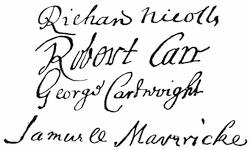 Richard Nicolls
Robert Carr
George Cartwright
Samuell Mavericke